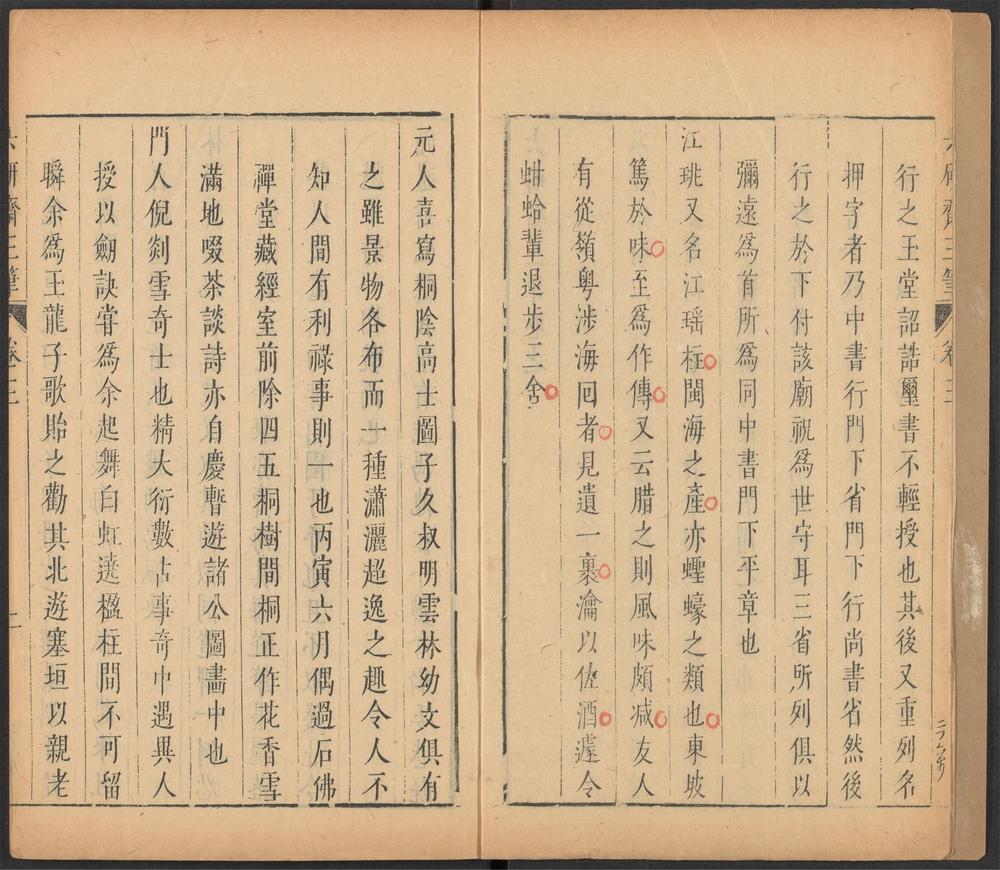 行之王堂詔誥璽書不輕授也其後又重列名
押字者乃中書行門下省門下行尚書省然後
行之於下付該廟祝爲世守耳三省所列俱以
彌遠爲首所爲同中書門下平章也
江珧又名江瑶柱閩海之產亦蟶蠔之類也東坡
篤於味至爲作傳又云腊之則風味頗减友人
有從嶺粵涉海回者見遺一裹瀹以佐酒遽令
蚶蛤輩退步三舍
元人喜寫桐陰高士圖子久叔明雲林幼文俱有
之雖景物各布而一種瀟灑超逸之趣令人不
知人間有利祿事則一也丙寅六月偶過石佛
禪堂藏經室前除四五桐樹間桐正作花香雪
滿地啜茶談詩亦自慶暫遊諸公圖畵中也
門人倪剡雪奇士也精大衍數占事奇中遇異人
授以劒訣甞爲余起舞白虹遶楹柱間不可留
瞬余爲王龍子歌貽之勸其北遊塞垣以親老
研齋三筆 卷三